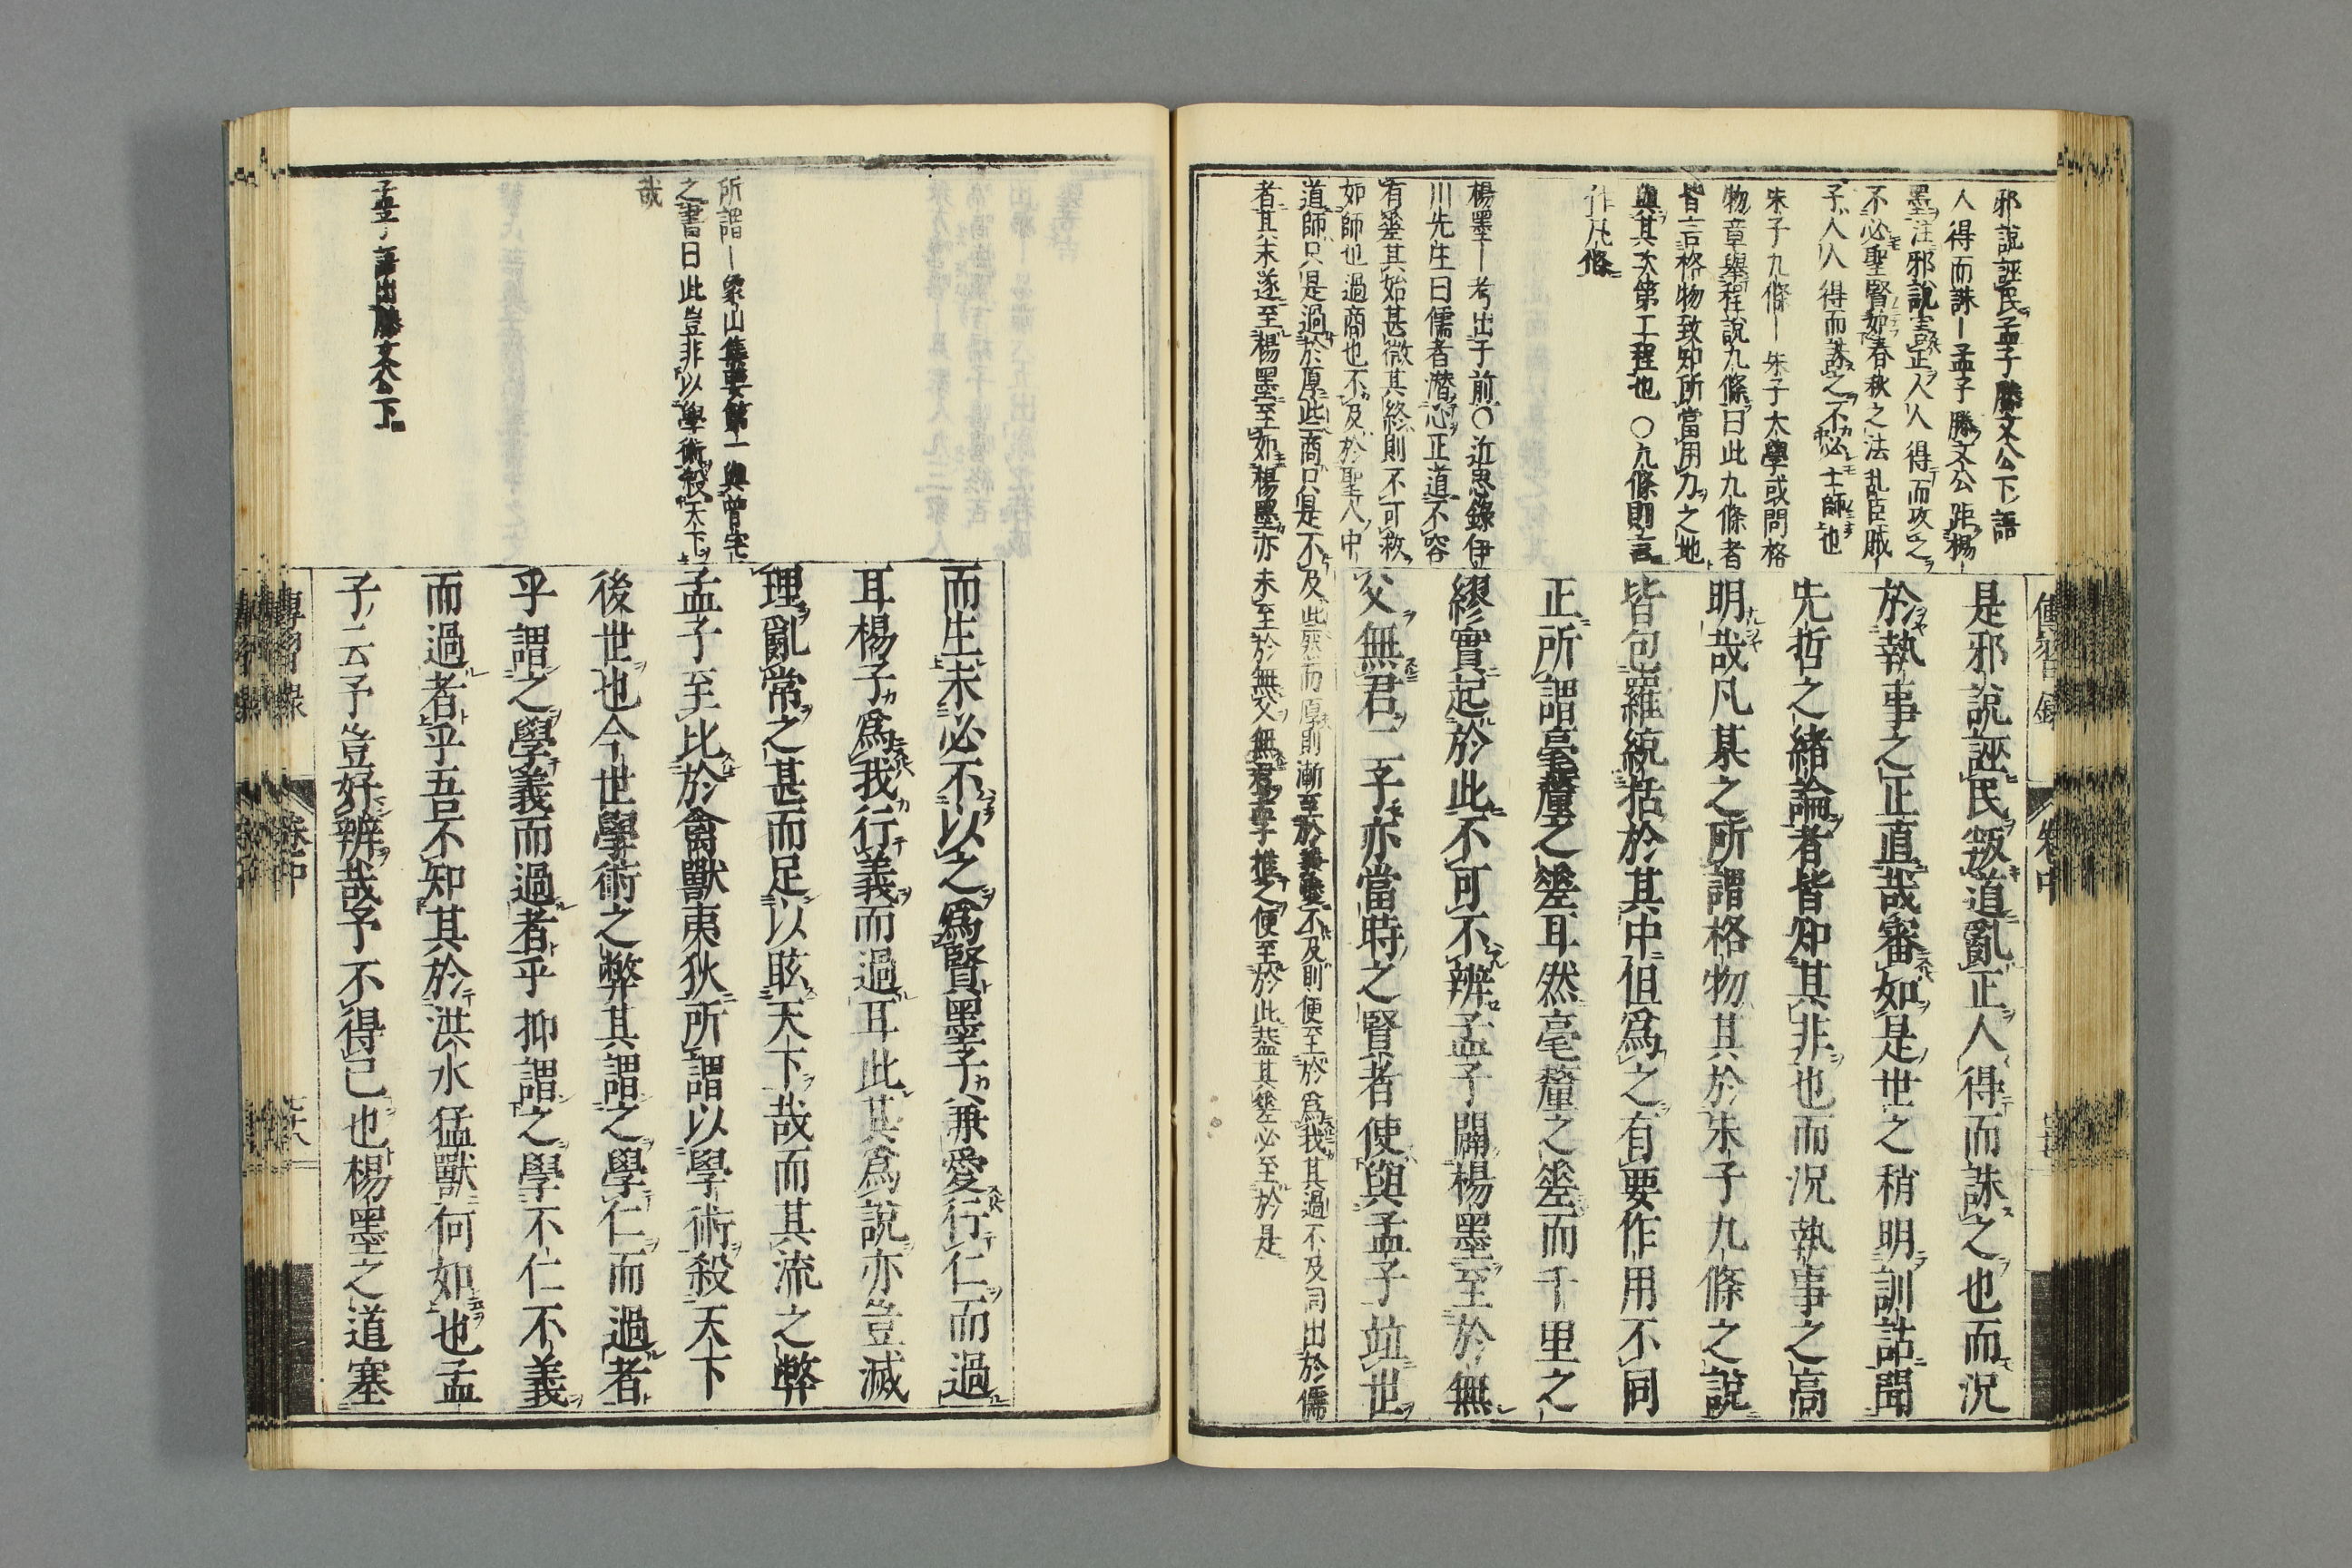 邪說誣民孟子滕文公下語
人得而誅―孟子滕文公距楊―
墨注邪說害正人人得而攻之
不必聖賢如春秋之法乱臣賊―
子人人得而誅之不必士師也
朱子九條―朱子大學或問格
物章舉程說九條曰此九條者
皆言格物致知所當用力之地
與其次第工程也○九條則言
作凡條
楊墨―考出于前○近思錄伊
川先生曰儒者潜心正道不容
有差其始甚微其終則不可救
如師也過商也不及於聖人中
道師只是過於厚些商只是不及些然而厚則漸至於兼愛不及則便至於爲我其過不及同出於儒
者其末遂至楊墨至如楊墨亦未至於無父無君孟子推之便至於此蓋其差必至於是
傳習錄 卷中
是邪說誣民叛道亂正人得而誅之也而况
於執事之正直哉審如是世之稍明訓詁聞
先哲之緒論者皆知其非也而况執事之高
明哉凡某之所謂格物其於朱子九條之說
皆包羅統括於其中但爲之有要作用不同
正所謂毫釐之差耳然毫釐之差而千里之
繆實起於此不可不辨孟子闢楊墨至於無
父無君二子亦當時之賢者使與孟子竝世
所謂―象山集要第一與曾宅
之書曰此豈非以學術殺天下
哉
孟子―語出滕文公下
而生未必不以之爲賢墨子兼愛行仁而過
耳楊子爲我行義而過耳此其爲說亦豈滅
理亂常之甚而足以眩天下哉而其流之弊
孟子至比於禽獸夷狄所謂以學術殺天下
後世也今世學術之弊其謂之學仁而過者
乎謂之學義而過者乎抑謂之學不仁不義
而過者乎吾不知其於洪水猛獸何如也孟
子云予豈好辨哉予不得已也楊墨之道塞
傳習錄 卷中